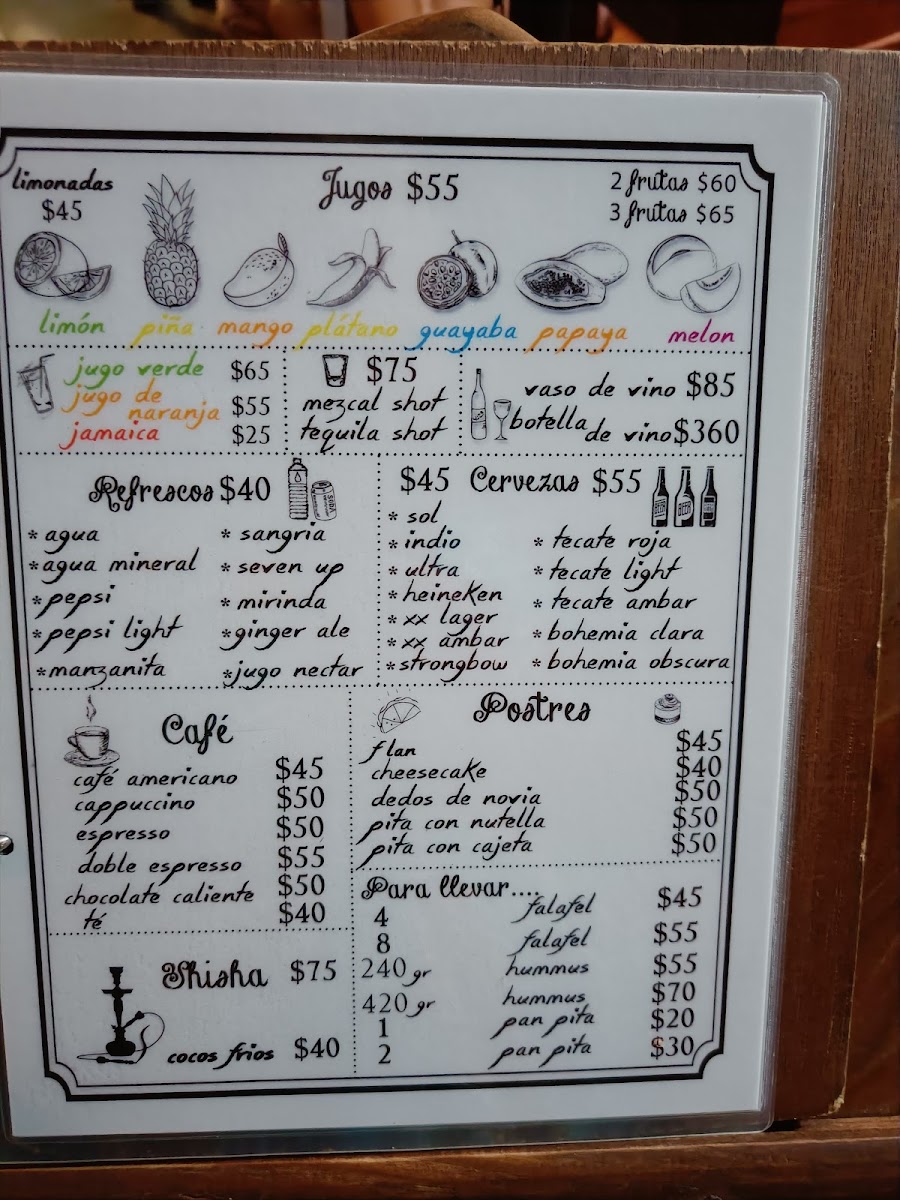 limonadas
$45
Jugos $55
2 frutas $60
3 frutas $65
limón piña mango plátano guayaba papaya melon
jugo verde $65
jugo de
naranja $55
jamaica $25
$75
mezcal shot
tequila shot
vaso de vino $85
botella de vino $360
Refrescos $40
* agua
* agua mineral
* pepsi
* pepsi light
* manzanita
* sangria
* seven up
* mirinda
* ginger ale
* jugo nectar
$45 Cervezas $55
* sol
* indio
* ultra
* heineken
* xx lager
* xx ambar
* strongbow
* tecate roja
* tecate light
* tecate ambar
* bohemia clara
* bohemia obscura
BEER BEER
SODA
Café
café americano $45
cappuccino $50
espresso $50
doble espresso $55
chocolate caliente $50
té $40
Postres
flan $45
cheesecake $40
dedos de novia $50
pita con nutella $50
pita con cajeta $50
Para llevar....
4 falafel $45
8 falafel $55
240 gr hummus $55
420 gr hummus $70
1 pan pita $20
2 pan pita $30
Shisha $75
cocos frios $40